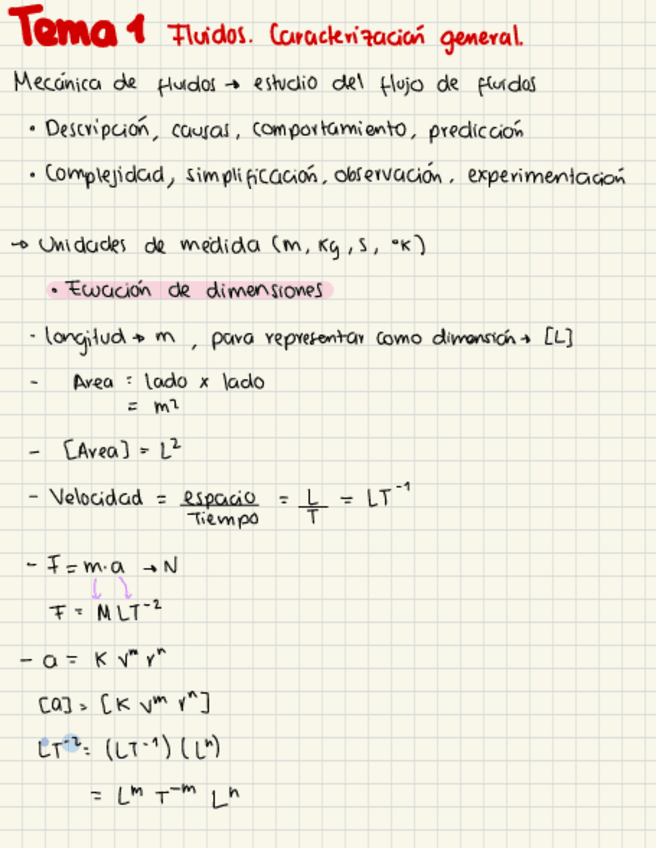 Tema 1 Fluidos. Caracterización general.
Mecánica de fluidos → estudio del flujo de fluidos
• Descripción, causas, comportamiento, predicción
• Complejidad, simplificación, observación, experimentación
→ Unidades de medida (m, Kg, s, °K)
• Ecuación de dimensiones
- longitud → m , para representar como dimensión → [L]
- Area = lado x lado
= m²
- [Area] = L²
- Velocidad = espacio/Tiempo = L/T = LT⁻¹
- F = m·a → N
F = MLT⁻²
- a = K vᵐ rⁿ
[a] = [K vᵐ rⁿ]
LT⁻² = (LT⁻¹) (Lⁿ)
= Lᵐ T⁻ᵐ Lⁿ